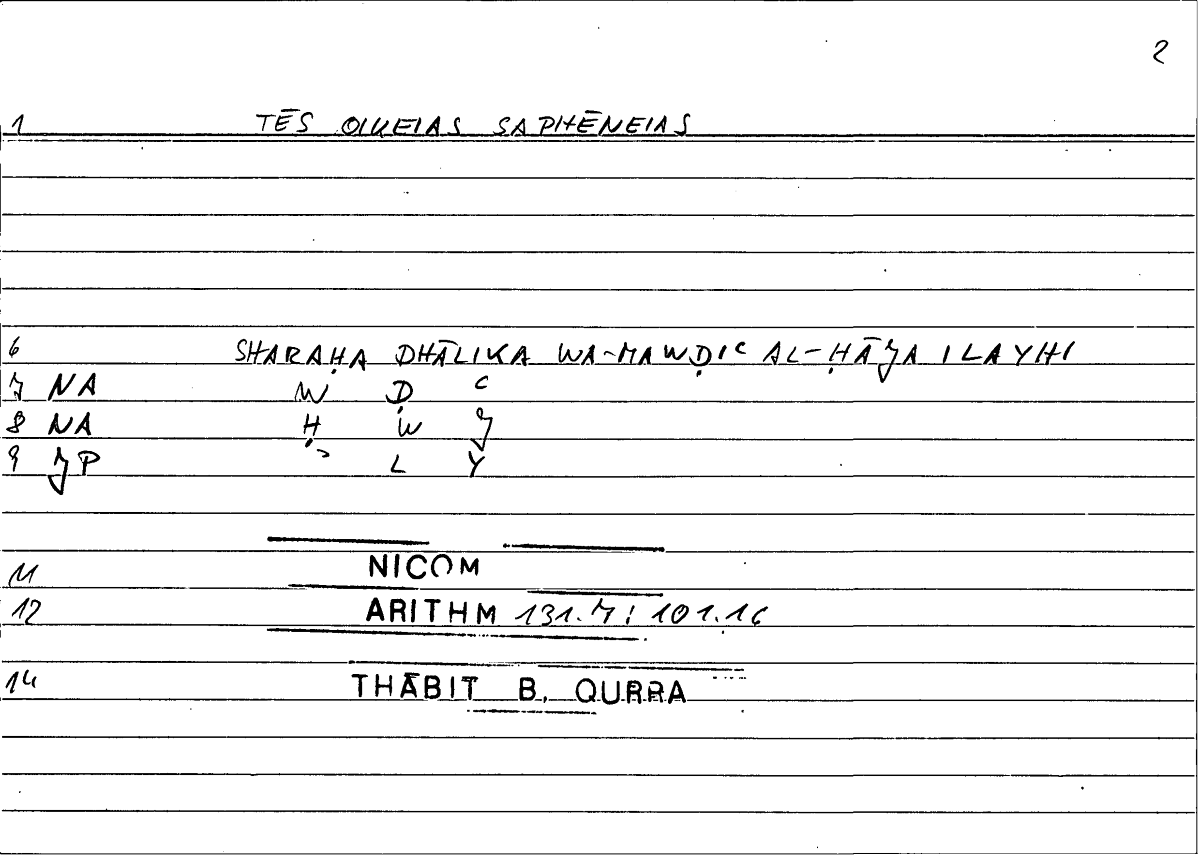 2
1 TĒS OIKEIAS SAPHĒNEIAS
6 SHARAḤA DHĀLIKA WA-MAWḌIC AL-ḤĀJA ILAYHI
7 NA W Ḍ C
8 NA Ḥ W J
9 JP ʾ L Y
11 NICOM
12 ARITHM 131.7 : 101.16
14 THĀBIT B. QURRA